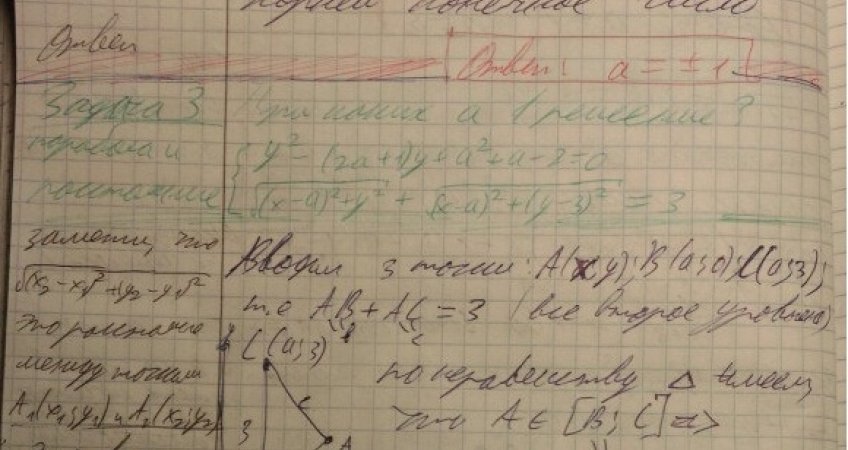 конечное число
Ответ
Ответ: a = ± 1
Задача 3
При каких a 1 решение?
y² - (2a+1)y + a² + a - 2 = 0
√(x-a)²+y² + √(x-a)²+(y-3)² = 3
и расстояние
заметим, что
√(x₂-x₁)²+(y₂-y₁)²
это расстояние
между точками
A₁(x₁;y₁) и A₂(x₂;y₂)
Вводим 3 точки: A(x;y); B(a;0); C(a;3);
т.е AB + AC = 3 (все второе уравнение)
C(a;3)
по неравенству Δ имеем,
что A ∈ [B; C] =>
3
c
A